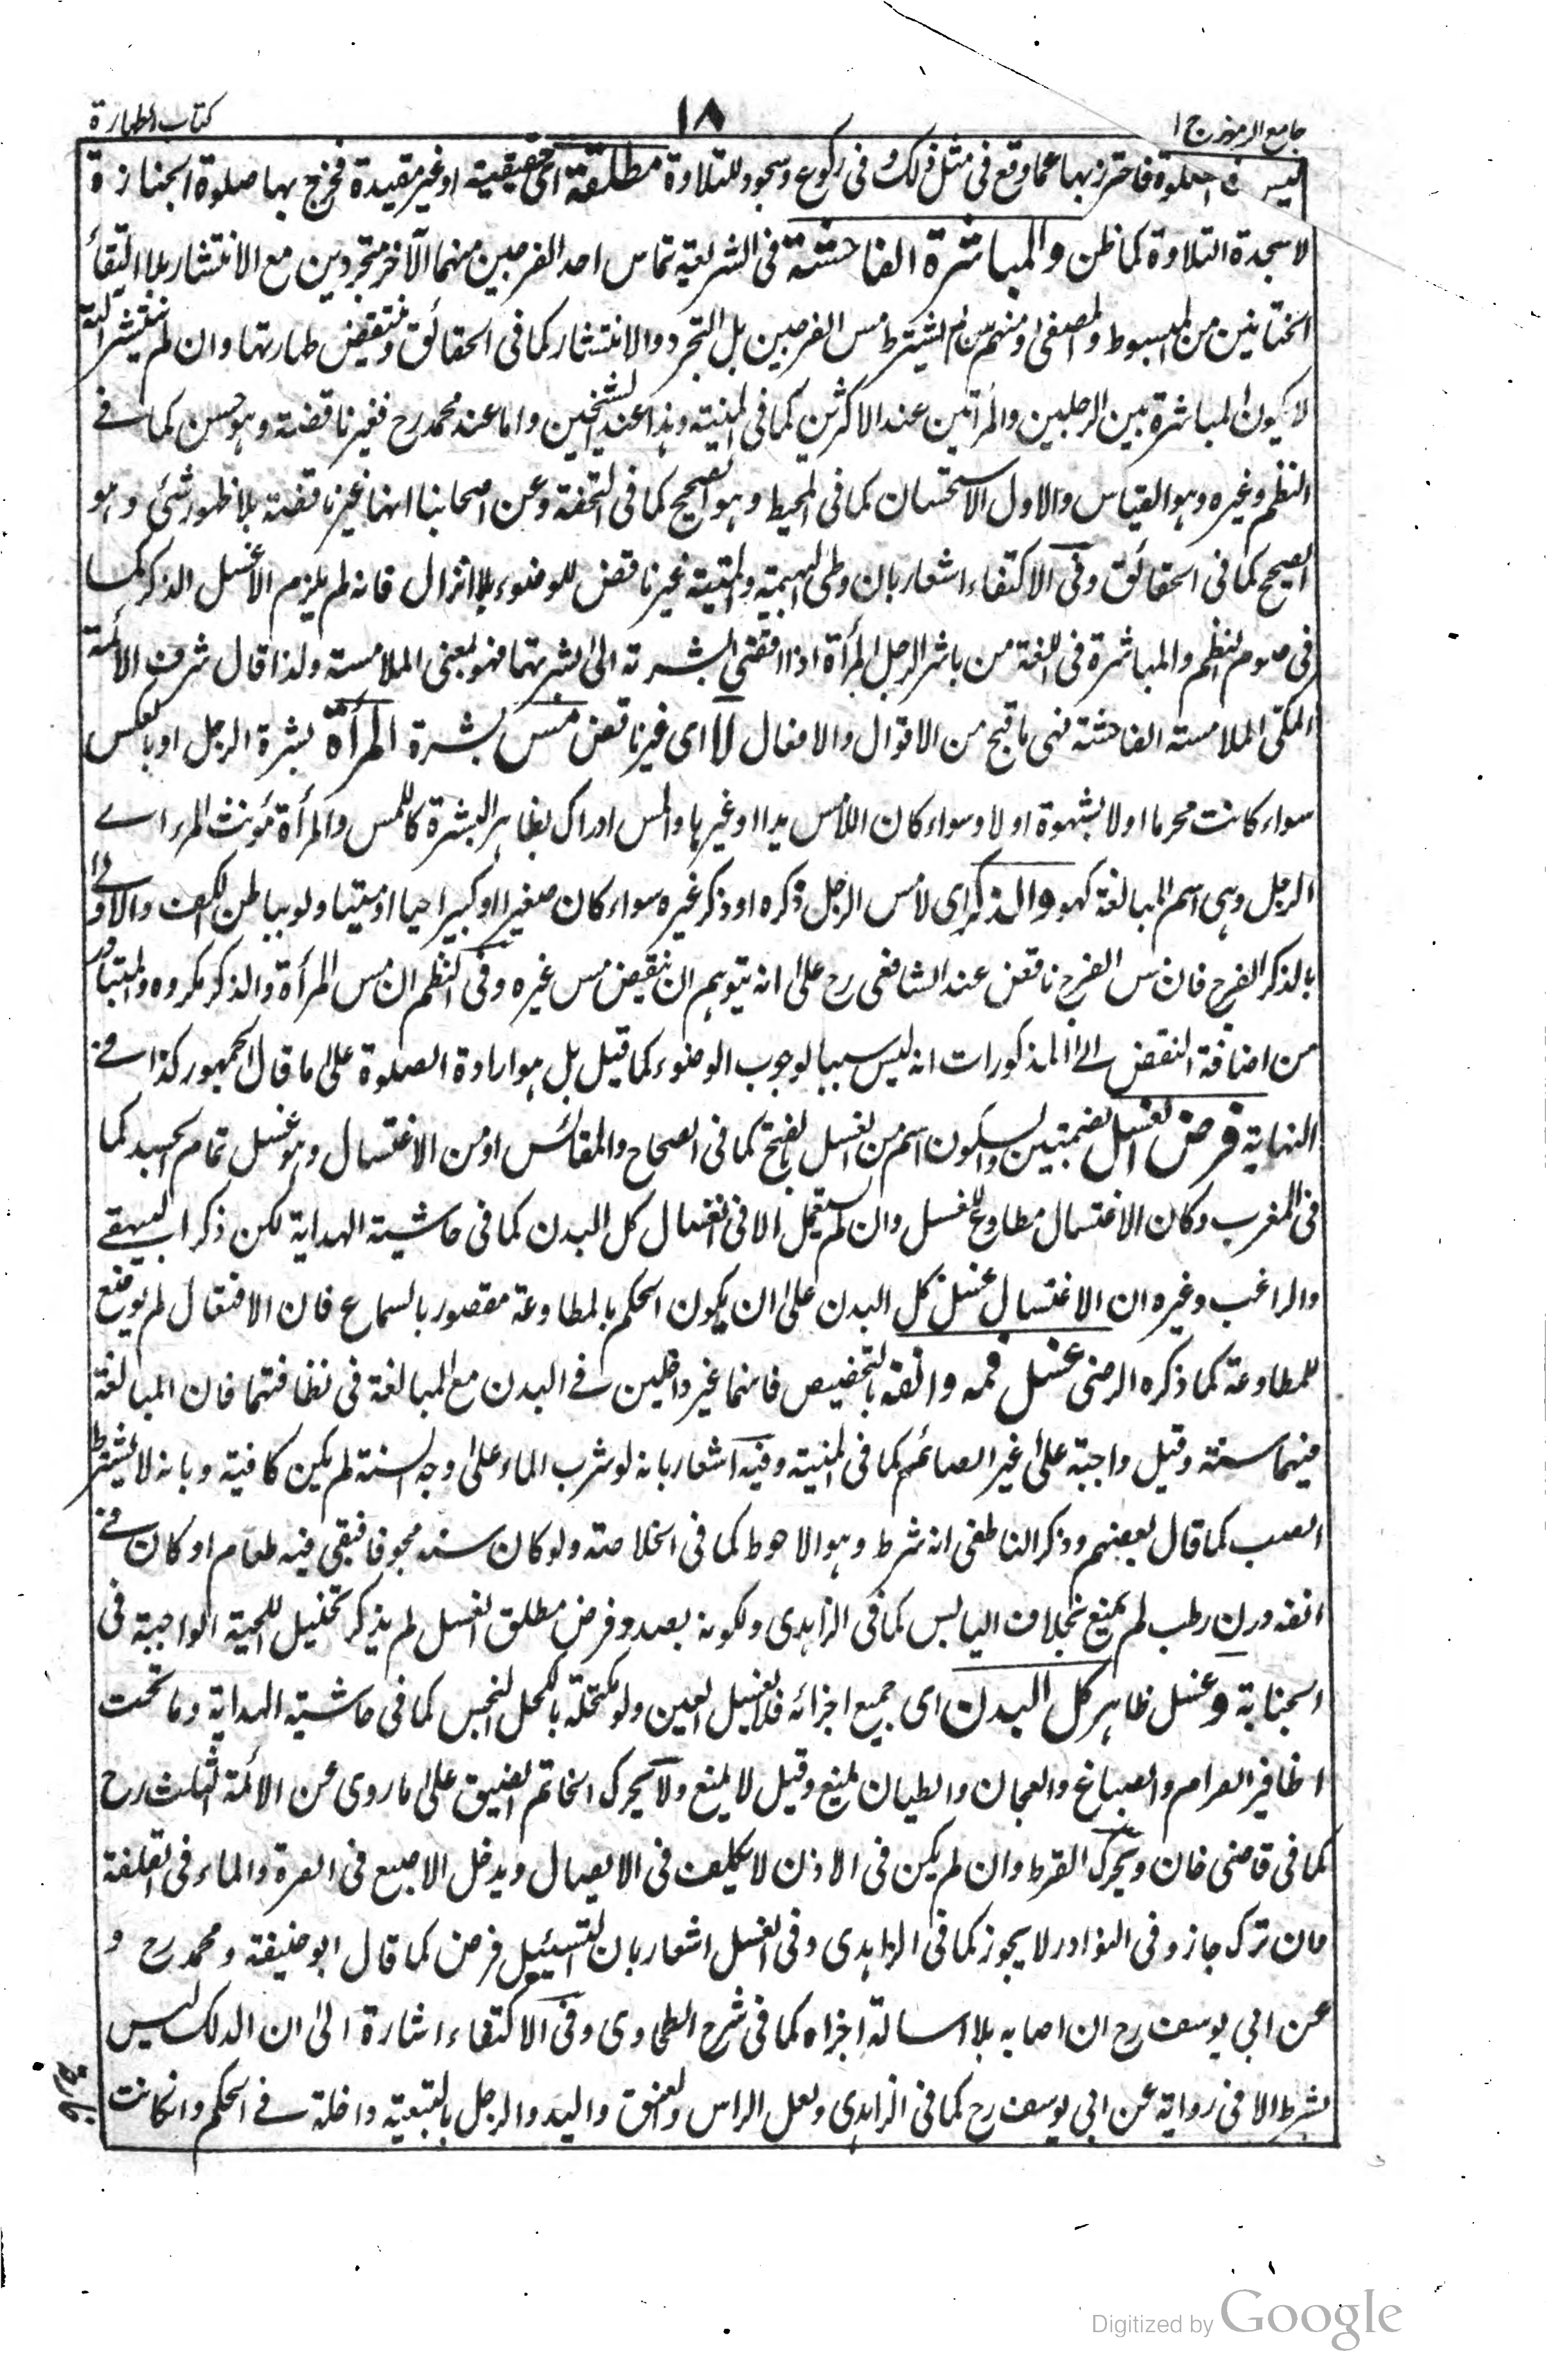 جامع الرموز ج ا
١٨
كتاب الطهارة
ليس فى الصلوة فاحترز بها عما وقع فى مثل ذلك وفى ركوع وسجود للتلاوة مطلقة اى حقيقية او غير مقيدة فخرج بها صلوة الجنازة و
لا سجدة التلاوة كما ظن والمباشرة الفاحشة فى الشريعة تماس احد الفرجين منهما الآخر متجردين مع الانتشار بلا التقاء
الختانين من المبسوط والمصفى ومنهم من لم يشترط مس الفرجين بل التجرد والانتشار كما فى الحقائق وتنتقض طهارتها وان لم ينتشر آلته
لا يكون المباشرة بين الرجلين والمرأتين عند الاكثرين كما فى المنية وهذا عند الشيخين واما عند محمد رح فغير ناقضة وهو حسن كما فى
النظم وغيره وهو القياس والاول الاستحسان كما فى المحيط وهو الصحيح كما فى التحفة وعن اصحابنا انها غير ناقضة بلا ظهور شئ وهو
الصحيح كما فى الحقائق وفى الاكتفاء اشعار بان وطى البهيمة والميتة غير ناقض للوضوء بلا انزال فانه لم يلزم الا غسل الذكر كما
فى صوم النظم والمباشرة فى اللغة من باشر الرجل المرأة اذا افضى بشرته الى بشرتها فهو بمعنى الملامسة ولذا قال شرف الائمة
المكى الملامسة الفاحشة فهى ما قبح من الاقوال والافعال لا اى غير ناقض مس بشرة المرأة بشرة الرجل او بالعكس
سواء كانت محرما اولا بشهوة اولا وسواء كان اللامس يدا او غيرها والمس ادراك بظاهر البشرة كاللمس والمرأة مؤنث المرء اى
الرجل وهى اسم للبالغة كهو والذكر اى لامس الرجل ذكره او ذكر غيره سواء كان صغيرا او كبيرا حيا او ميتا ولو بباطن الكف والاولى
بالذكر الفرج فان مس الفرج ناقض عند الشافعى رح على انه يتوهم ان ينقض مس غيره وفى النظم ان مس المرأة والذكر مكروه والمتبادر
من اضافة النقض الى المذكورات انه ليس سببا لوجوب الوضوء كما قيل بل هو ارادة الصلوة على ما قال الجمهور كذا فى
النهاية فرض الغسل بضمتين والسكون اسم من الغسل بالفتح كما فى الصحاح والمقائس او من الاغتسال وهو غسل تمام الجسد كما
فى المغرب وكان الاغتسال مطاوع للغسل وان لم يستعمل الا فى انغسال كل البدن كما فى حاشية الهداية لكن ذكر البيهقى
والراغب وغيره ان الاغتسال غسل كل البدن على ان يكون الحكم بالمطاوعة مقصور بالسماع فان الافتعال لم يوضع
للمطاوعة كما ذكره الرضى غسل فمه وانفه بالتخصيص فانهما غير داخلين فى البدن مع المبالغة فى نظافتهما فان المبالغة
فيهما سنة وقيل واجبة على غير الصائم كما فى المنية وفيه اشعار بانه لو شرب الماء على وجه السنة لم يكن كافية وبانه لا يشترط
الصب كما قال بعضهم وذكر الناطفى انه شرط وهو الاحوط كما فى الخلاصة ولو كان سنه مجوفا فبقى فيه طعام او كان فى
انفه درن رطب لم يمنع بخلاف اليابس كما فى الزاهدى ولكونه بصدد فرض مطلق الغسل لم يذكر تخليل اللحية الواجبة فى
الجنابة وغسل ظاهر كل البدن اى جميع اجزائه فلا يغسل العين ولو مكتحلة بالكحل النجس كما فى حاشية الهداية وما تحت
اظافير الصرام والصباغ والعجان والطيان يمنع وقيل لا يمنع ولا يحرك الخاتم الضيق على ما روى عن الائمة الثلث رح
كما فى قاضى خان ويحرك القرط وان لم يكن فى الاذن لا تكليف فى الايصال ويدخل الاصبع فى السرة والماء فى القلفة
فان ترك جاز وفى النوادر لا يجوز كما فى الزاهدى وفى الغسل اشعار بان التسييل فرض كما قال ابو حنيفة ومحمد رح و
عن ابى يوسف رح ان اصابه بلا اسالة اجزاه كما فى شرح الطحاوى وفى الاكتفاء اشارة الى ان الدلك ليس
بشرط الا فى رواية عن ابى يوسف رح كما فى الزاهدى ولعل الراس والعنق واليد والرجل بالتبعية داخلة فى الحكم وانكانت
Digitized by Google